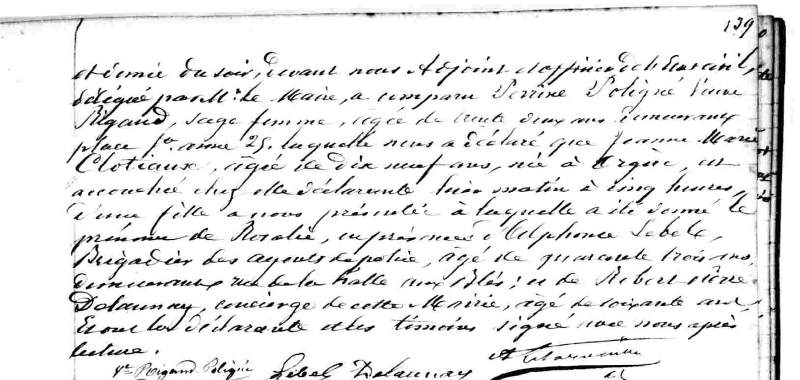 139
et demie du soir, devant nous Adjoint et officier de l'Etat civil,
délégué par Mr. le Maire, a comparu Perrine Poligné veuve
Rigaud, sage femme, agée de trente deux ans demeurant
place Ste. anne 25. laquelle nous a déclaré que Jeanne Marie
Clotiaux, agée de dix neuf ans, née à est
accouchée chez elle déclarante hier matin à cinq heures,
d'une fille a nous présentée à laquelle a été donné le
prénom de Rosalie, en présence d'Alphonse Lebel,
Brigadier des agents de police, agé de quarante trois ans,
demeurant rue de la halle aux Blés; et de Robert Pierre
Delaunay, concierge de cette Mairie, agé de soixante ans
Et ont la déclarante et les témoins signé avec nous après
lecture.
Ve. Rigaud Poligné Lebel Delaunay